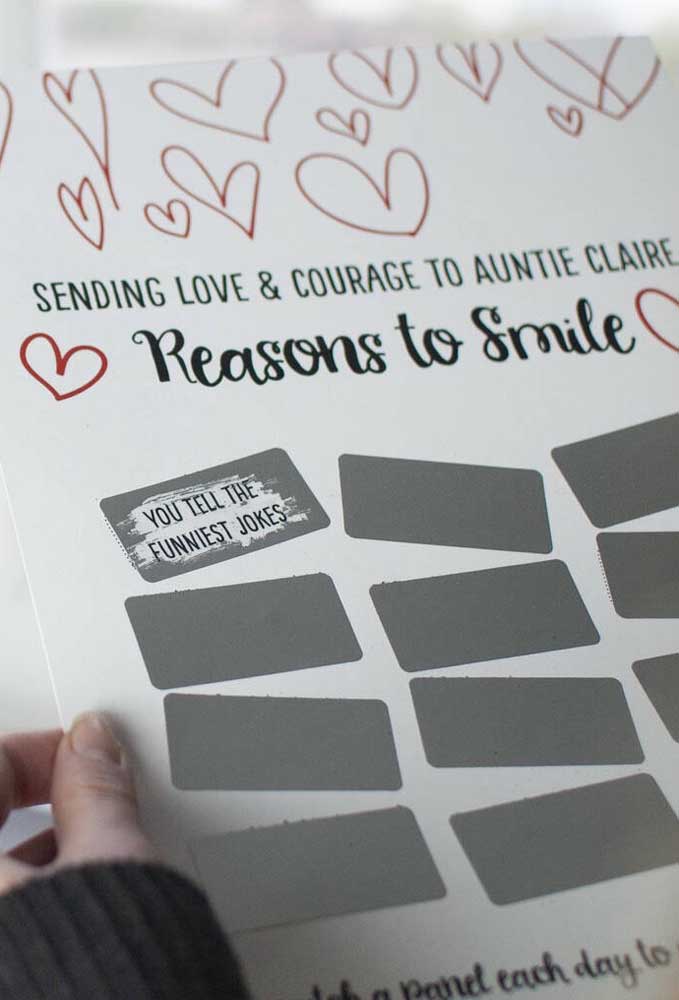 SENDING LOVE & COURAGE TO AUNTIE CLAIRE
Reasons to Smile
YOU TELL THE
FUNNIEST JOKES
a panel each day to